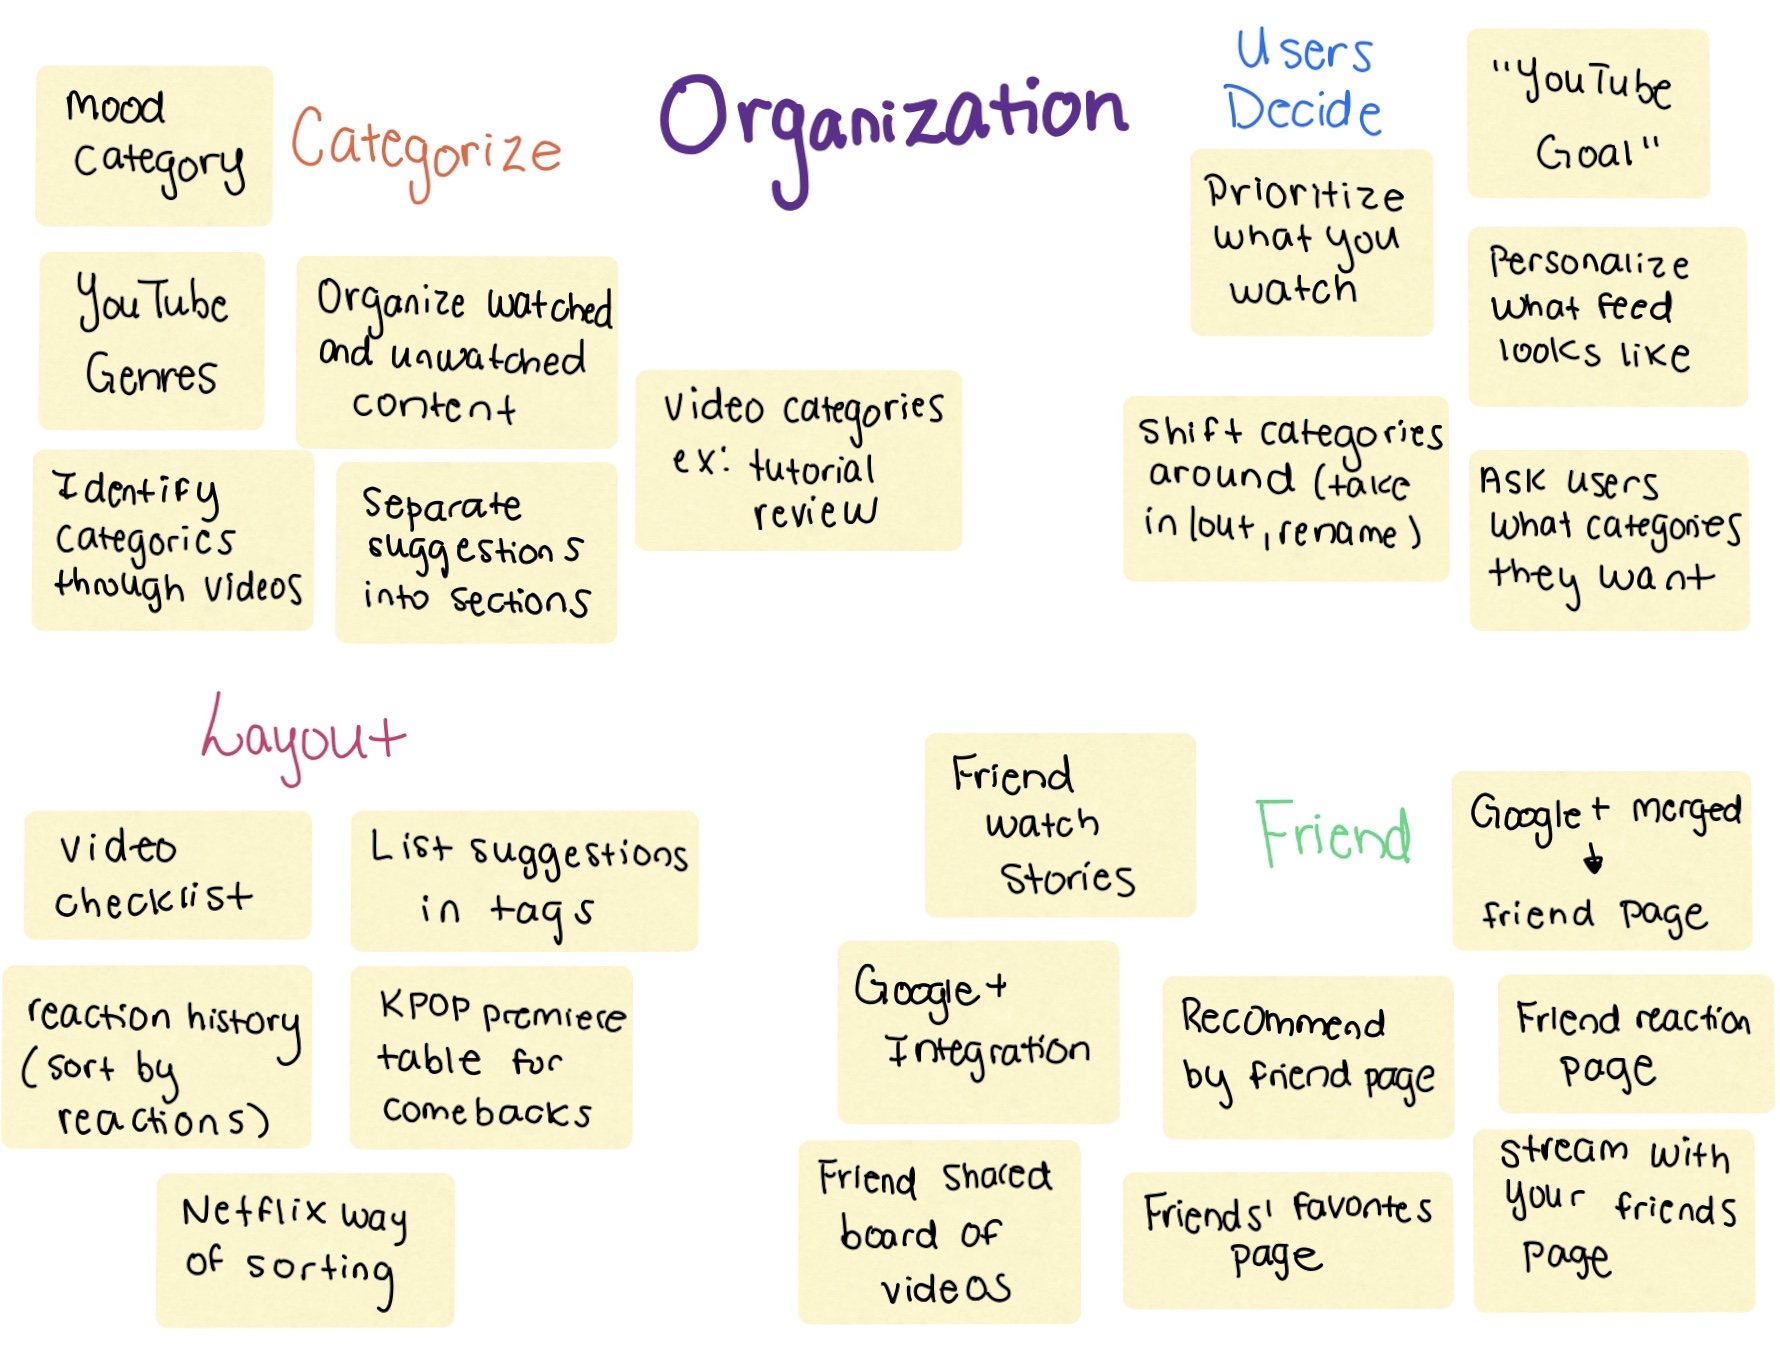 Organization
Categorize
Mood
Category
YouTube
Genres
Organize watched
and unwatched
content
Identify
categories
through videos
Separate
suggestions
into sections
Video categories
ex: tutorial
review
Users
Decide
"YouTube
Goal"
Prioritize
what you
watch
Personalize
what feed
looks like
Shift categories
around (take
in/out, rename)
Ask users
what categories
they want
Layout
Video
checklist
List suggestions
in tags
reaction history
(sort by
reactions)
KPOP premiere
table for
comebacks
Netflix way
of sorting
Friend
Friend
watch
Stories
Google+ merged
↓
friend page
Google+
Integration
Recommend
by friend page
Friend reaction
page
Friend shared
board of
videos
Friends' favorites
page
stream with
your friends
page